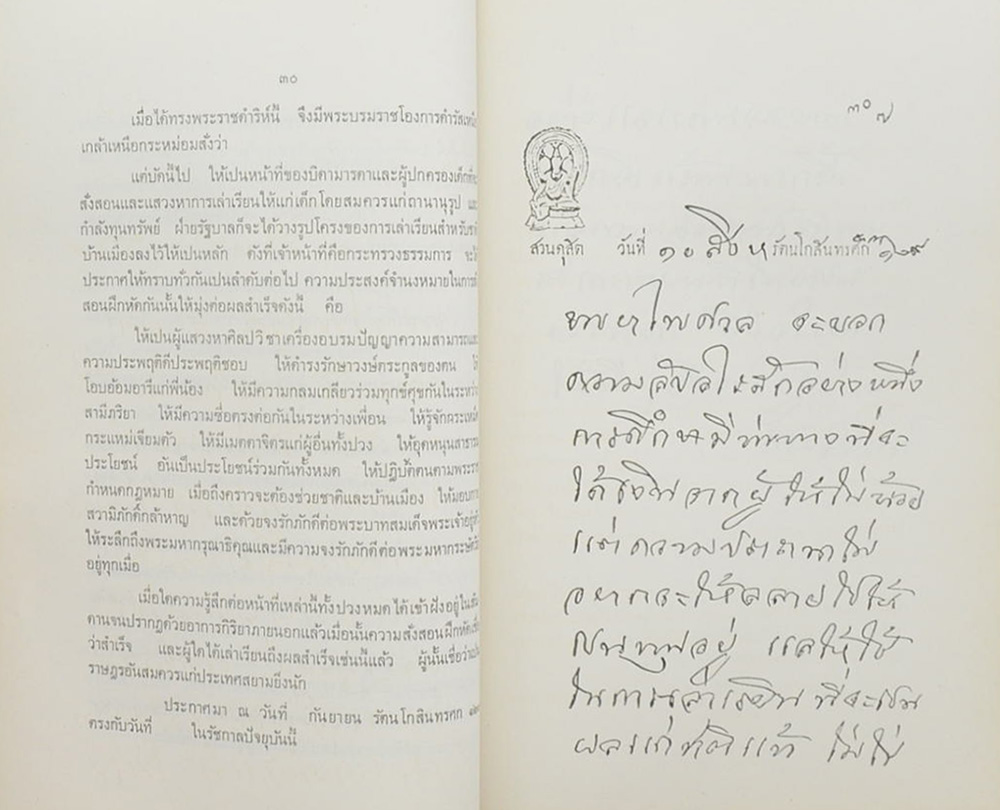 ๓๐
เมื่อได้ทรงพระราชดำริห์นี้ จึงมีพระบรมราชโองการดำรัสเหนือ
เกล้าเหนือกระหม่อมสั่งว่า
แต่บัดนี้ไป ให้เปนหน้าที่ของบิดามารดาและผู้ปกครองเด็กที่จะ
สั่งสอนและแสวงหาการเล่าเรียนให้แก่เด็กโดยสมควรแก่ถานานุรูป และ
กำลังทุนทรัพย์ ฝ่ายรัฐบาลก็จะได้วางรูปโครงของการเล่าเรียนสำหรับ
บ้านเมืองลงไว้ให้เปนหลัก ดังที่เจ้าหน้าที่คือกระทรวงธรรมการ จะได้
ประกาศให้ทราบทั่วกันเปนลำดับต่อไป ความประสงค์จำนงหมายในการ
สอนฝึกหัดกันนั้นให้มุ่งต่อผลสำเร็จดังนี้ คือ
ให้เปนผู้แสวงหาศิลปวิชาเครื่องอบรมปัญญาความสามารถและ
ความประพฤติดีประพฤติชอบ ให้ดำรงรักษาวงษ์ตระกูลของตน ให้
โอบอ้อมอารีแก่พี่น้อง ให้มีความกลมเกลียวร่วมทุกข์ศุขกันในระหว่าง
สามีภริยา ให้มีความซื่อตรงต่อกันในระหว่างเพื่อน ให้รู้จักกระเหม็ด
กระแหม่เจียมตัว ให้มีเมตตาจิตรแก่ผู้อื่นทั้งปวง ให้อุดหนุนสาธารณ
ประโยชน์ อันเป็นประโยชน์ร่วมกันทั้งหมด ให้ปฏิบัติตนตามพระราช
กำหนดกฎหมาย เมื่อถึงคราวจะต้องช่วยชาติและบ้านเมือง ให้มอบกาย
สวามิภักดิ์กล้าหาญ และด้วยจงรักภักดีต่อพระบาทสมเด็จพระเจ้าอยู่หัว
ให้ระลึกถึงพระมหากรุณาธิคุณและมีความจงรักภักดีต่อพระมหากระษัตริย์
อยู่ทุกเมื่อ
เมื่อใดความรู้สึกต่อหน้าที่เหล่านี้ทั้งปวงหมดได้เข้าฝังอยู่ในสัน
ดานจนปรากฏด้วยอาการกิริยาภายนอกแล้วเมื่อนั้นความสั่งสอนฝึกหัด
ว่าสำเร็จ และผู้ใดได้เล่าเรียนถึงผลสำเร็จเช่นนี้แล้ว ผู้นั้นเชื่อว่าเปน
ราษฎรอันสมควรแก่ประเทศสยามยิ่งนัก
ประกาศมา ณ วันที่ กันยายน รัตนโกสินทรศก
ตรงกับวันที่ ในรัชกาลปัจยุบันนี้
๓๐ ๗
สวนดุสิต วันที่ ๑๐ สิงห รัตนโกสินทรศก ๑๒๙
พระยาไพศาล จะบอก
ความลับให้สักอย่างหนึ่ง
การศึกษามีท่าทางที่จะ
ได้เงินจากผู้ให้ไม่น้อย
แต่ความปรารถนาไม่
อยากจะให้ละลายไป ให้
เปนทุนอยู่ แลให้ใช้
ในการเล่าเรียน ที่จะเปน
ผลแก่ชาติแท้ ไม่ใช่